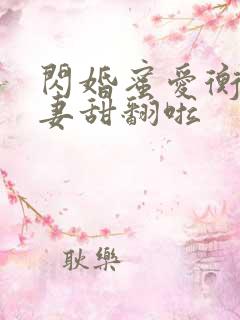 閃婚蜜愛衡
妻甜翻啦
耿樂